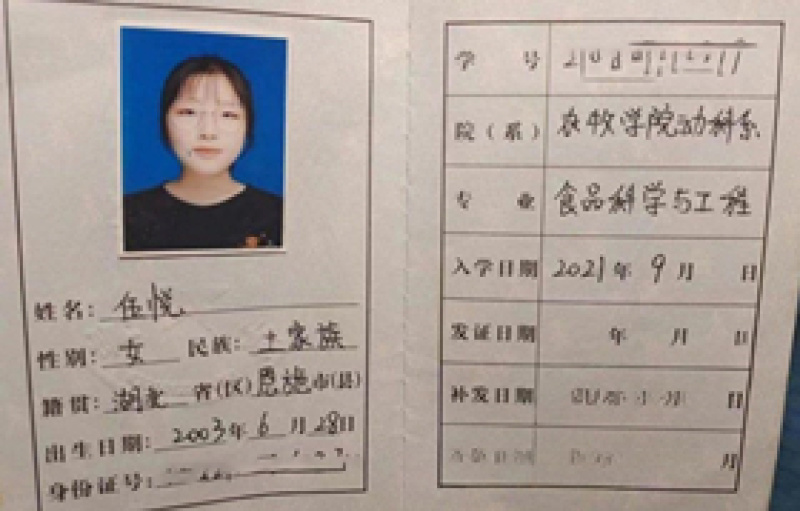 姓名: 任悦
性别: 女 民族: 土家族
籍贯: 湖北 省(区) 恩施 市(县)
出生日期: 2003年 6 月 28日
身份证号:
学 号
院(系) 农牧学院动科系
专 业 食品科学与工程
入学日期 2021年 9 月 日
发证日期 年 月 日
补发日期 日
月